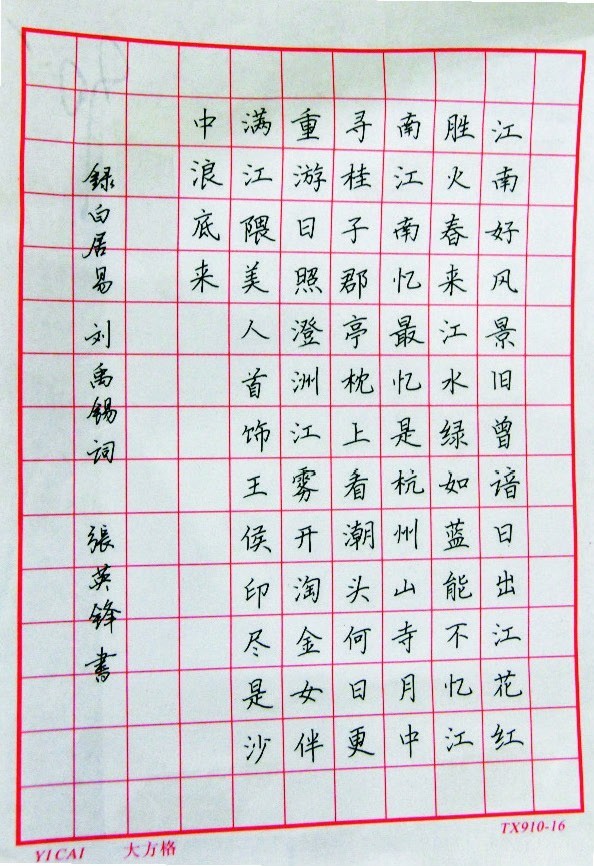 江南好风景旧曾谙日出江花红
胜火春来江水绿如蓝能不忆江
南江南忆最忆是杭州山寺月中
寻桂子郡亭枕上看潮头何日更
重游日照澄洲江雾开淘金女伴
满江隈美人首饰王侯印尽是沙
中浪底来
録白居易 刘禹锡词 張英鋒書
YICAI 大方格
TX910-16